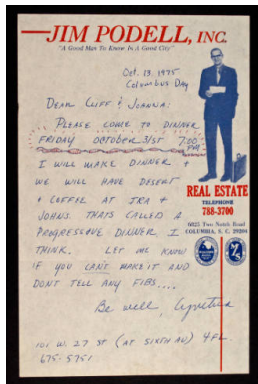 JIM PODELL, INC.
"A Good Man To Know In A Good City"
Oct. 13, 1975
Columbus Day
DEAR CLIFF & JOANNA:
PLEASE COME TO DINNER
FRIDAY OCTOBER 31ST 7:00 PM
I WILL MAKE DINNER &
WE WILL HAVE DESERT
& COFFEE AT IRA &
JOHNS. THATS CALLED A
PROGRESSIVE DINNER I
THINK. LET ME KNOW
IF YOU CAN'T MAKE IT AND
DONT TELL ANY FIBS....
Be well,
101 W. 27 ST (AT SIXTH AV) 4FL.
675-5751
REAL ESTATE
TELEPHONE
788-3700
6025 Two Notch Road
COLUMBIA, S. C. 29204